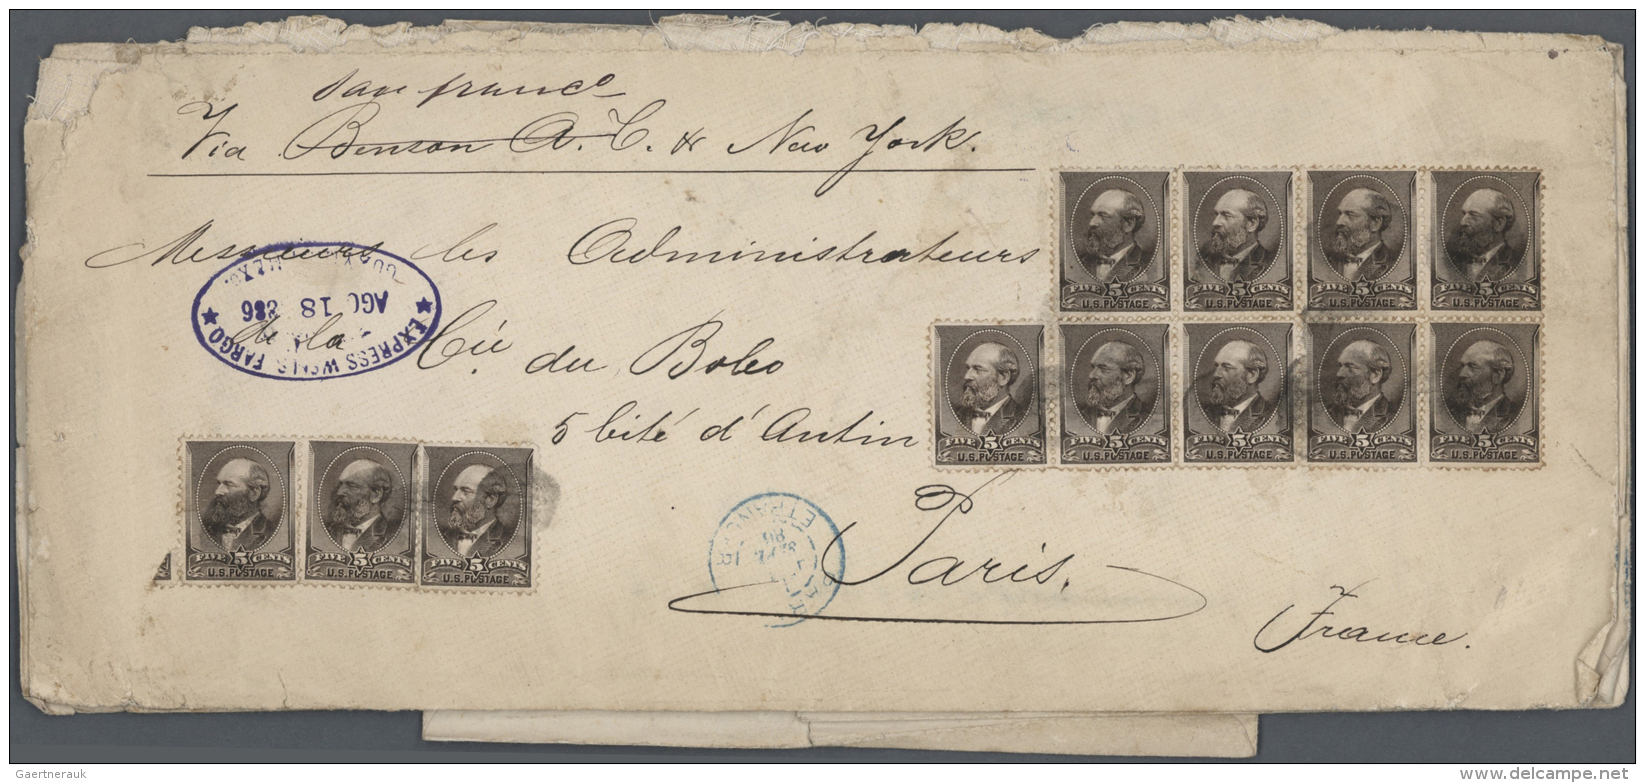 San franco
Via Benson A. C. & New York.
Messieurs les Administrateurs
de la Cie du Boleo
5 Cité d'Antin
Paris.
France.
EXPRESS WELLS FARGO
AGO 18 886
GUAY MEXO.
ETRANG
FIVE 5 CENTS
U.S. POSTAGE
FIVE 5 CENTS
U.S. POSTAGE
FIVE 5 CENTS
U.S. POSTAGE
FIVE 5 CENTS
U.S. POSTAGE
FIVE 5 CENTS
U.S. POSTAGE
FIVE 5 CENTS
U.S. POSTAGE
FIVE 5 CENTS
U.S. POSTAGE
FIVE 5 CENTS
U.S. POSTAGE
FIVE 5 CENTS
U.S. POSTAGE
FIVE 5 CENTS
U.S. POSTAGE
FIVE 5 CENTS
U.S. POSTAGE
FIVE 5 CENTS
U.S. POSTAGE
Gaertnerauk
www.delcampe.net